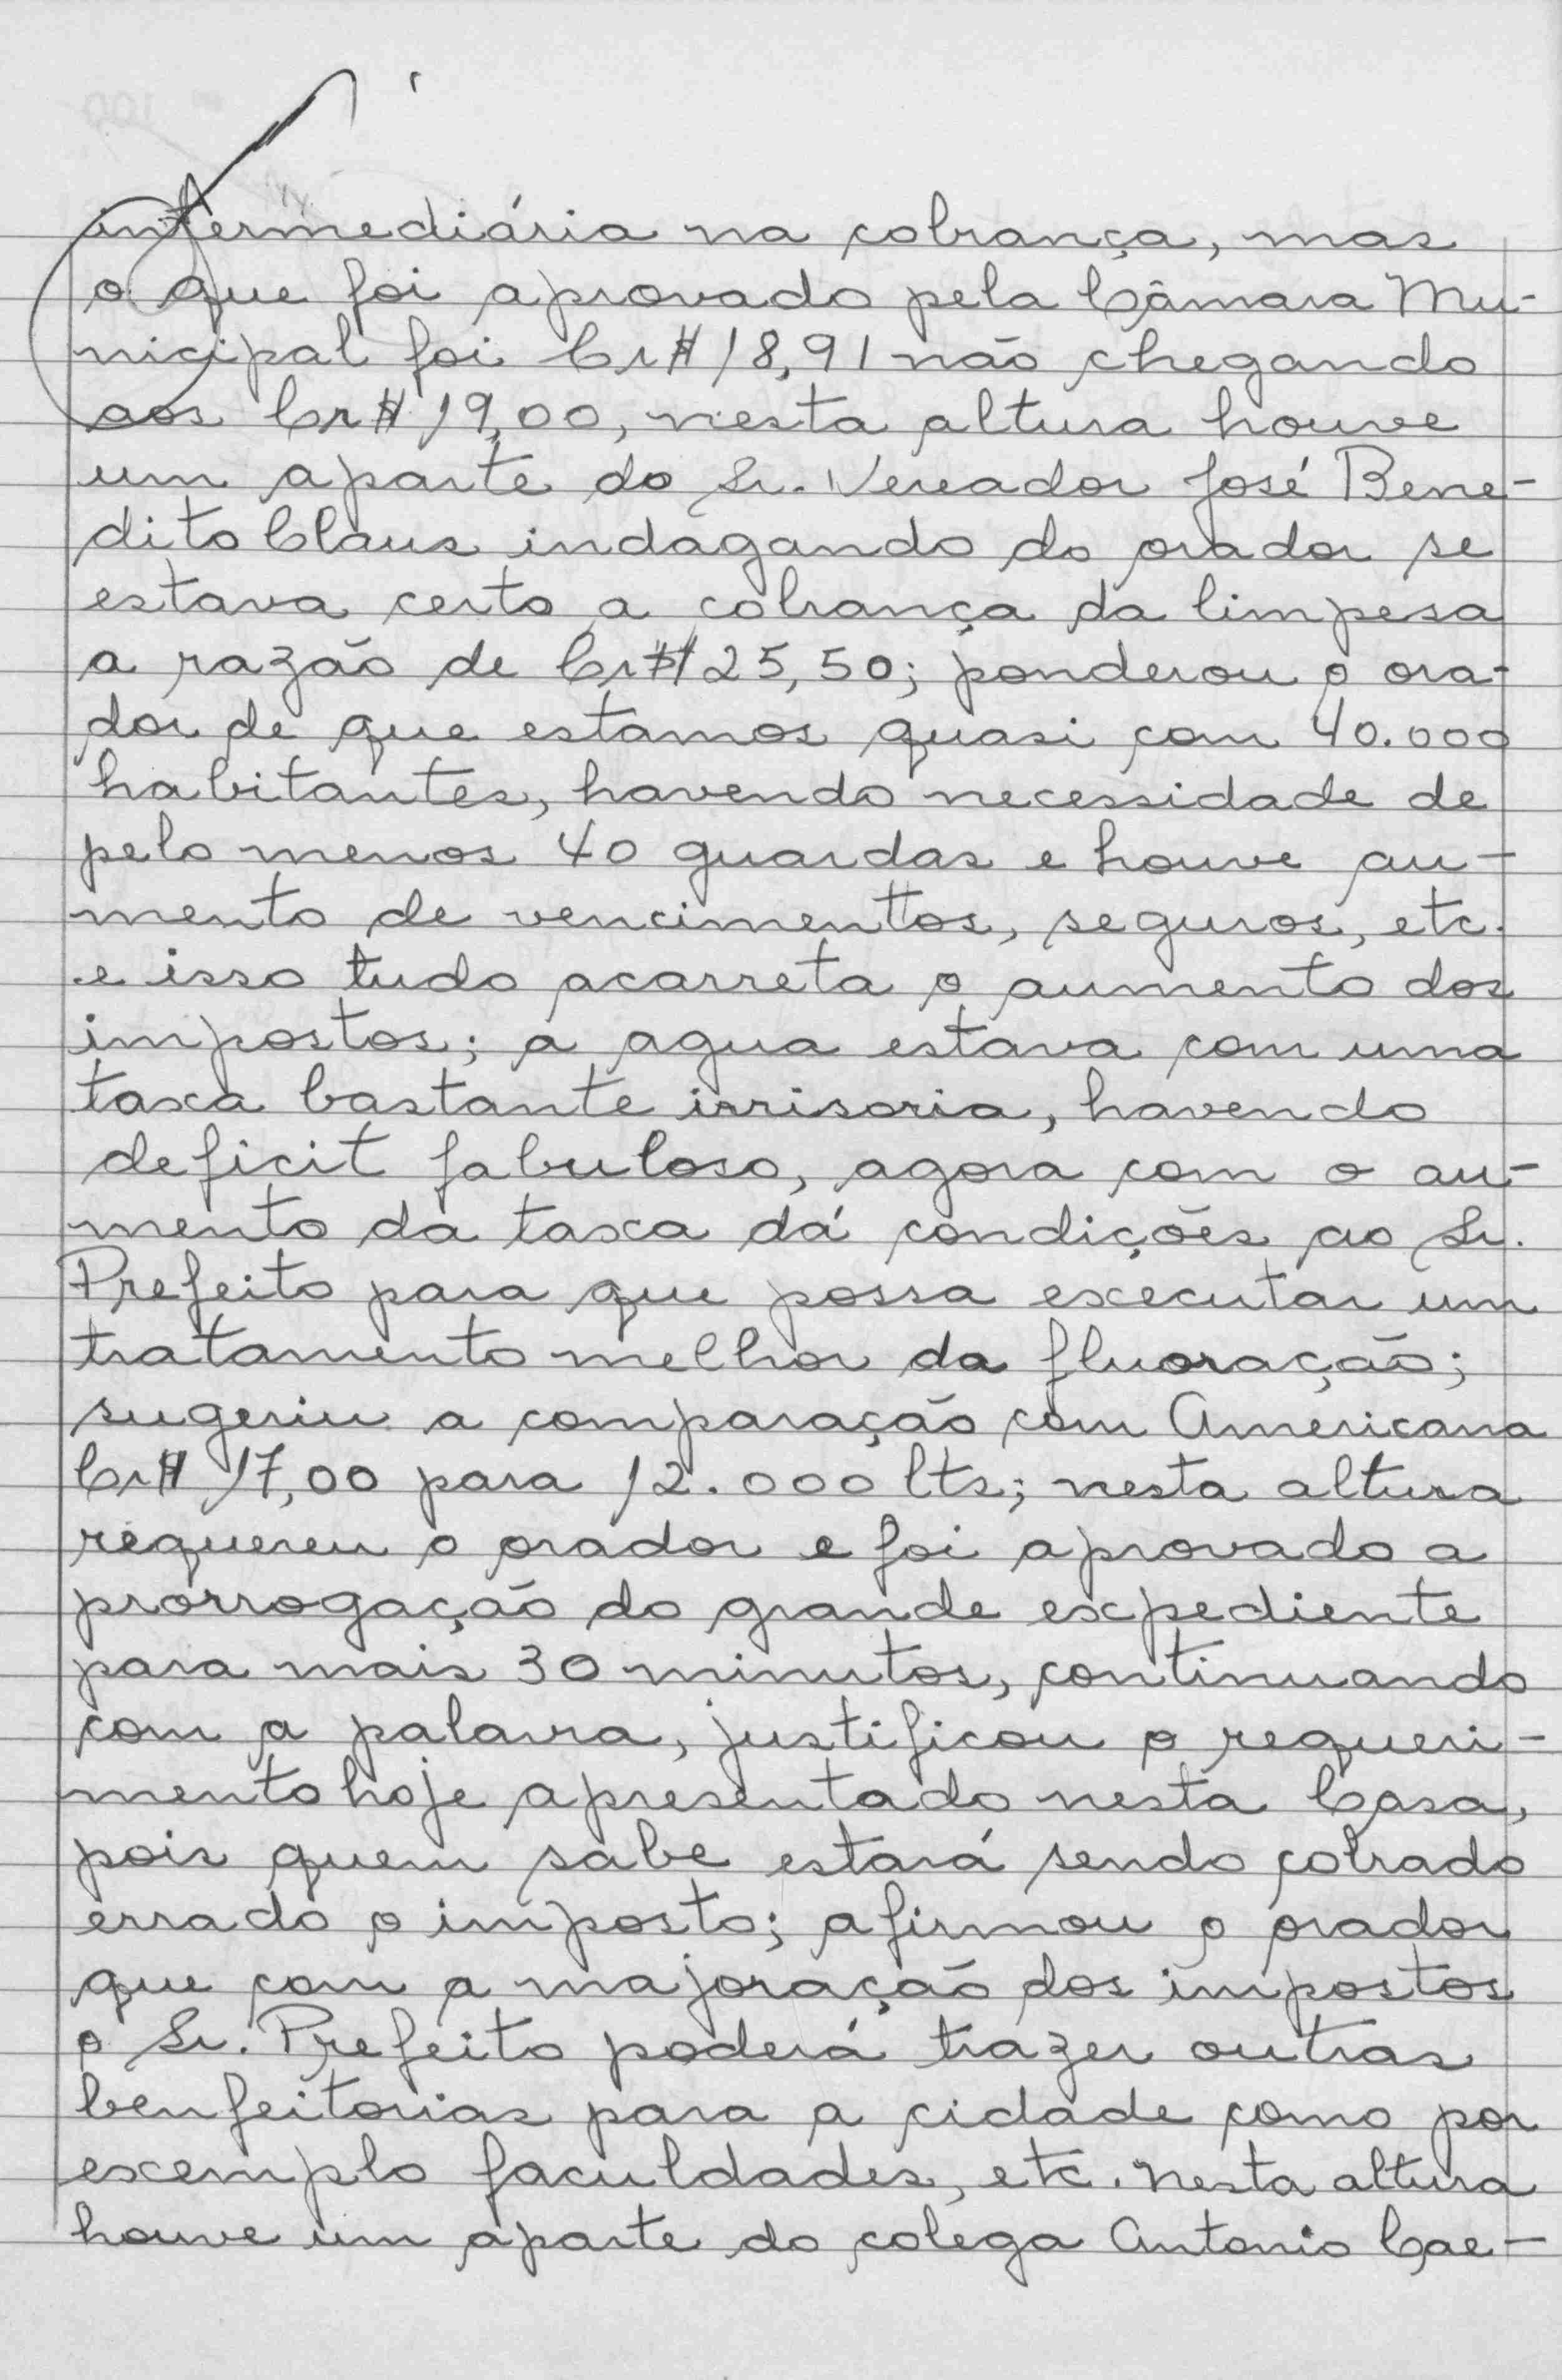 intermediária na cobrança, mas
o que foi aprovado pela Câmara Mu-
nicipal foi Cr$ 18,91 não chegando
aos Cr$ 19,00, nesta altura houve
um aparte do Sr. Vereador José Bene-
dito Claus indagando do orador se
estava certo a cobrança da limpesa
a razão de Cr$ 25,50; ponderou o ora-
dor de que estamos quasi com 40.000
habitantes, havendo necessidade de
pelo menos 40 guardas e houve au-
mento de vencimentos, seguros, etc.
e isso tudo acarreta o aumento dos
impostos; a agua estava com uma
taxa bastante irrisoria, havendo
deficit fabuloso, agora com o au-
mento da taxa dá condições ao Sr.
Prefeito para que possa executar um
tratamento melhor da fluoração;
sugeriu a comparação com Americana
Cr$ 17,00 para 12.000 lts; nesta altura
requereu o orador e foi aprovado a
prorrogação do grande expediente
para mais 30 minutos, continuando
com a palavra, justificou o requeri-
mento hoje apresentado nesta Casa,
pois quem sabe estará sendo cobrado
errado o imposto; afirmou o orador
que com a majoração dos impostos
o Sr. Prefeito poderá trazer outras
benfeitorias para a cidade como por
exemplo faculdades, etc. nesta altura
houve um aparte do colega Antonio Cae-